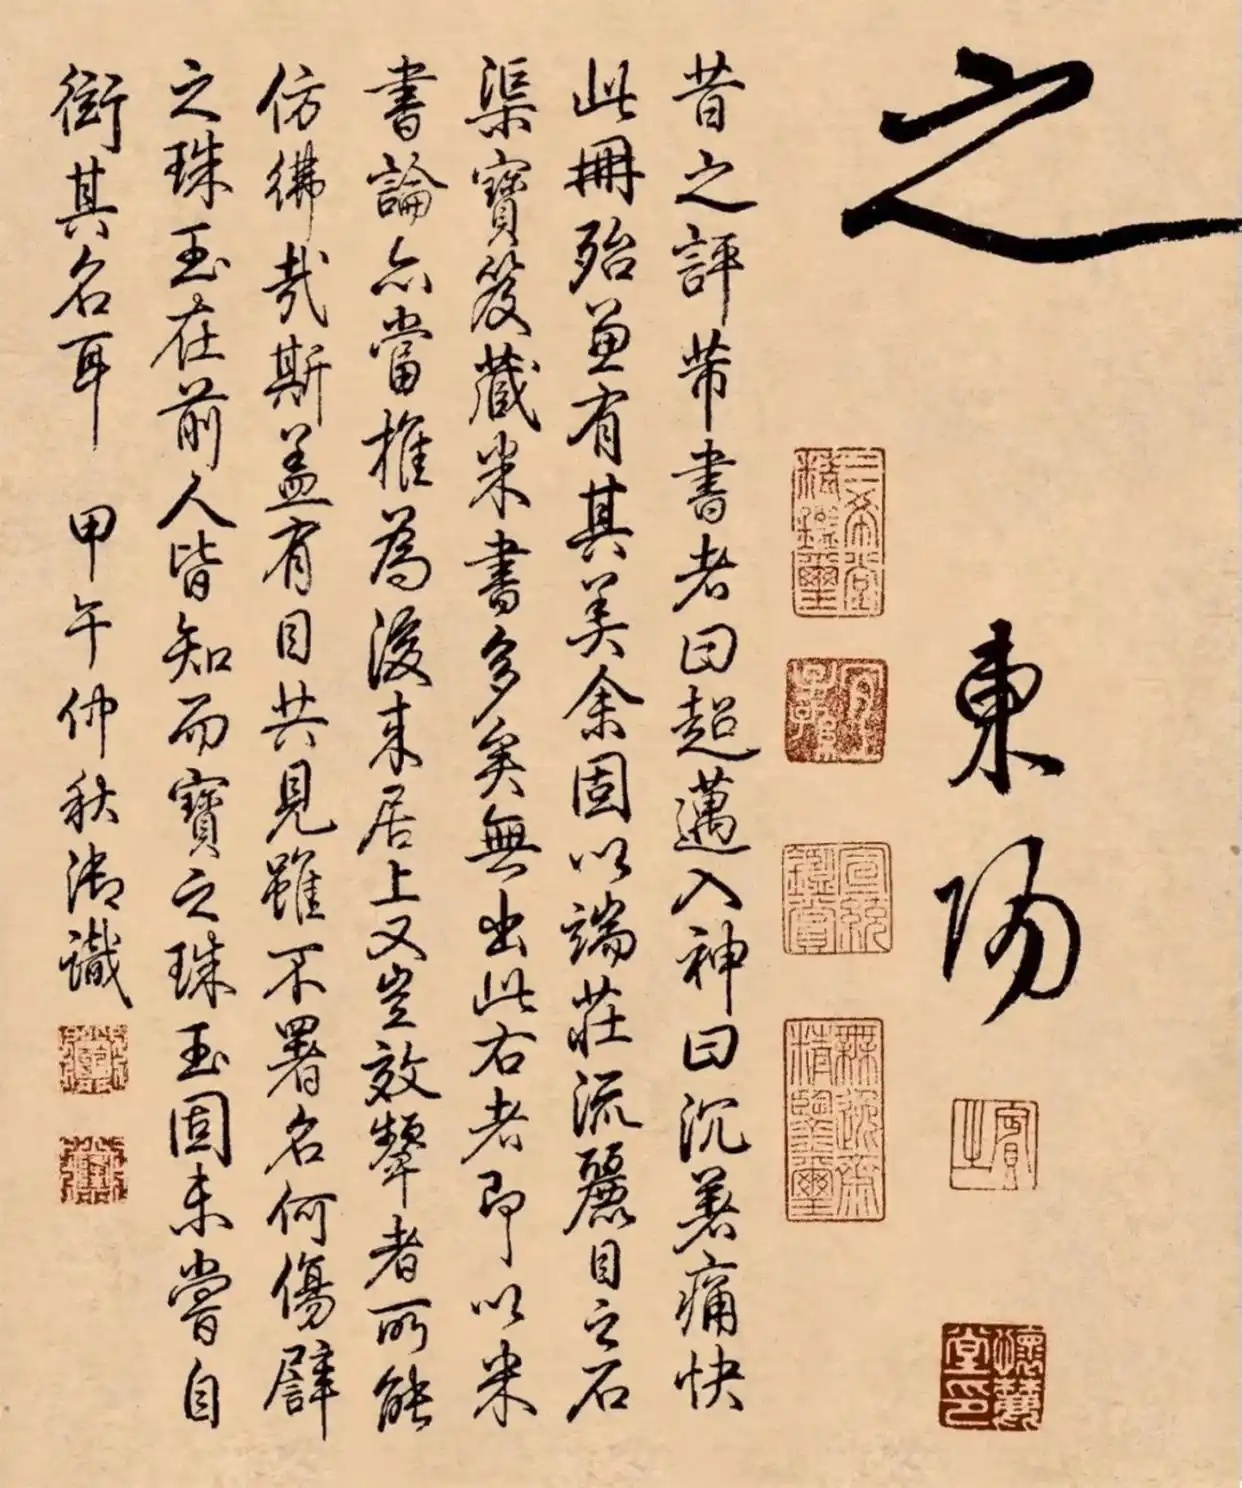 之
東陽
寶之
三希堂精鑑璽
宜子孫
宣統鑑賞
無逸齋精鑑璽
昔之評芾書者曰超邁入神曰沉著痛快
此冊殆兼有其美余固以端莊流麗目之石
渠寶笈藏米書多矣無出此右者即以米
書論亦當推為後來居上又豈效顰者所能
仿彿哉斯蓋有目共見雖不署名何傷譬
之珠玉在前人皆知而寶之珠玉固未嘗自
衒其名耳 甲午仲秋御識